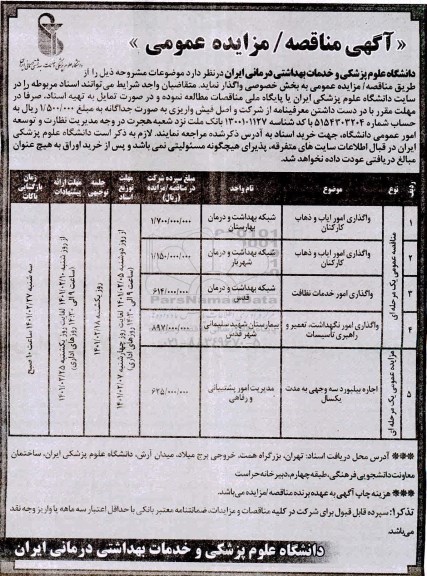 « آگهی مناقصه/ مزایده عمومی »
دانشگاه علوم پزشکی و خدمات بهداشتی درمانی ایران درنظر دارد موضوعات مشروحه ذیل را از
طریق مناقصه/ مزایده عمومی به بخش خصوصی واگذار نماید. متقاضیان واجد شرایط می‌توانند اسناد مربوطه را در
سایت دانشگاه علوم پزشکی ایران یا پایگاه ملی مناقصات مطالعه نموده و در صورت تمایل به تهیه اسناد، صرفا در
مهلت مقرر با در دست داشتن معرفینامه از شرکت و اصل فیش واریزی به صورت جداگانه به مبلغ ۱/۵۰۰/۰۰۰ ریال به
حساب شماره ۵۱۵۴۳۰۳۲۰۴ با کد شناسه ۱۳۰۰۱۰۱۱۲۷ بانک ملت نزد شعبه هجرت در وجه مدیریت نظارت و توسعه
امور عمومی دانشگاه، جهت خرید اسناد به آدرس ذکرشده مراجعه نمایند. لازم به ذکر است دانشگاه علوم پزشکی
ایران در قبال اطلاعات سایت های متفرقه، پذیرای هیچگونه مسئولیتی نمی باشد و پس از خرید اوراق به هیچ عنوان
مبالغ دریافتی عودت داده نخواهد شد.
ردیف نوع موضوع نام واحد مبلغ سپرده شرکت در مناقصه/ مزایده (ریال) مهلت توزیع اسناد جلسه توجیهی مهلت ارائه پیشنهادات زمان بازگشایی پاکات
مناقصه عمومی یک مرحله ای
۱ واگذاری امور ایاب و ذهاب کارکنان شبکه بهداشت و درمان بهارستان ۱/۷۰۰/۰۰۰/۰۰۰
۲ واگذاری امور ایاب و ذهاب کارکنان شبکه بهداشت و درمان شهریار ۱/۱۵۰/۰۰۰/۰۰۰
۳ واگذاری امور خدمات نظافت شبکه بهداشت و درمان قدس ۶۱۴/۰۰۰/۰۰۰
۴ واگذاری امور نگهداشت، تعمیر و راهبری تاسیسات بیمارستان شهید سلیمانی شهر قدس ۸۹۷/۰۰۰/۰۰۰
مزایده عمومی یک مرحله ای
۵ اجاره بیلبورد سه وجهی به مدت یکسال مدیریت امور پشتیبانی و رفاهی ۶۲۵/۰۰۰/۰۰۰
از روز دوشنبه ۱۴۰۱/۰۲/۰۵ لغایت روز چهارشنبه ۱۴۰۱/۰۲/۰۷ (ساعت ۹ الی ۱۴:۳۰ روزهای اداری)
روز یکشنبه ۱۴۰۱/۰۲/۱۸
از روز شنبه ۱۴۰۱/۰۲/۱۰ لغایت روز یکشنبه ۱۴۰۱/۰۲/۲۵ (ساعت ۹ الی ۱۴:۳۰ روزهای اداری)
سه شنبه ۱۴۰۱/۰۲/۲۷ ساعت ۱۰ صبح
ParsNamadData
*** آدرس محل دریافت اسناد: تهران، بزرگراه همت، خروجی برج میلاد، میدان آرش، دانشگاه علوم پزشکی ایران، ساختمان
معاونت دانشجویی فرهنگی، طبقه چهارم، دبیرخانه حراست
*** هزینه چاپ آگهی به عهده برنده مناقصه/مزایده می باشد.
تذکر۱: سپرده قابل قبول برای شرکت در کلیه مناقصات و مزایدات، ضمانتنامه معتبر بانکی با حداقل اعتبار سه ماهه یا واریز وجه نقد
می باشد.
دانشگاه علوم پزشکی و خدمات بهداشتی درمانی ایران